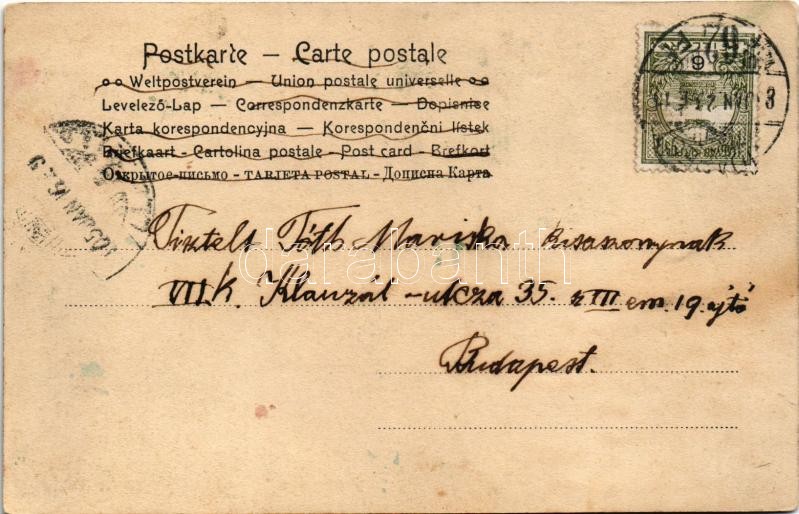 Postkarte – Carte postale
Weltpostverein – Union postale universelle
Levelező-Lap – Correspondenzkarte – Dopisnise
Karta korespondencyjna – Korespondenční lístek
Briefkaart - Cartolina postale - Post card - Brefkort
Открытое письмо - TARJETA POSTAL - Дописна Карта
Tisztelt Tóth Mariska kisaszonynak
VII K. Klauzál-utcza 35. z III em. 19. ajtó
Budapest.
darabanth
905 JAN
JAN 23
6